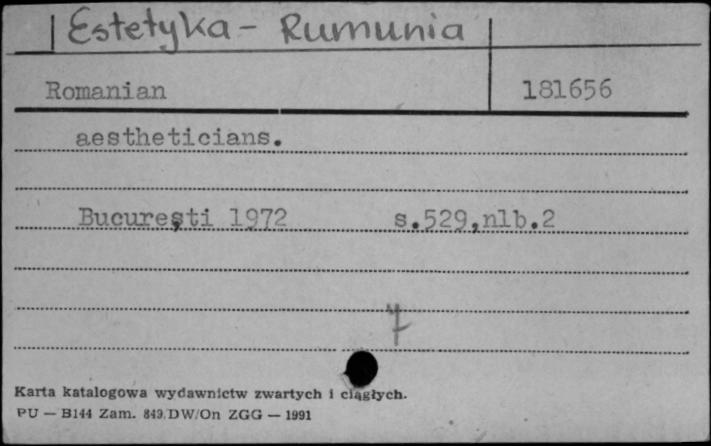 Estetyka - Rumunia
Romanian 181656
aestheticians.
București 1972 s.529,nlb.2
7
Karta katalogowa wydawnictw zwartych i ciągłych.
PU — B144 Zam. 849/DW/On ZGG — 1991